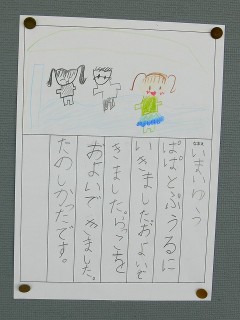 なまえ
いまいゆう
ぱぱとぷうるに
いきましたおよいで
きました。らっこを
およいできました。
たのしかったです。